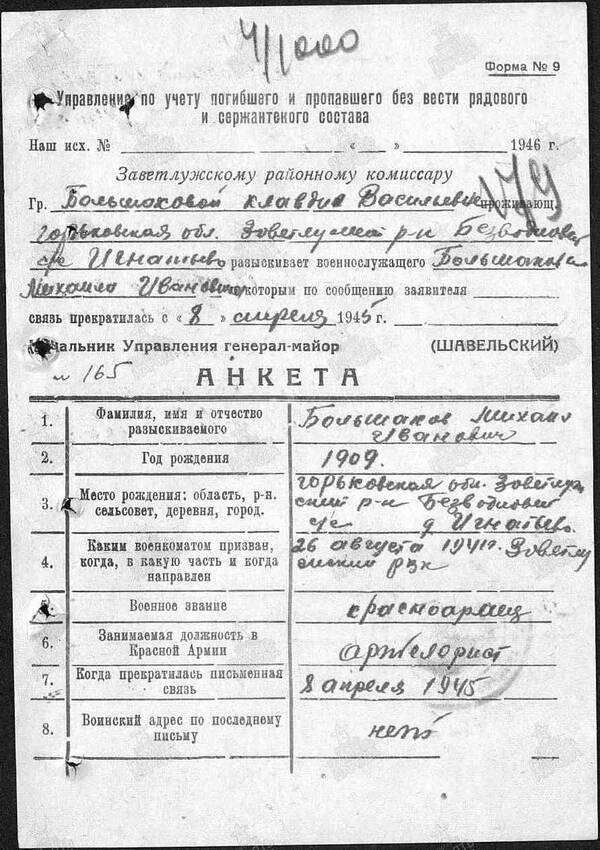 4/1000
Форма № 9
Управление по учету погибшего и пропавшего без вести рядового
и сержантского состава
Наш исх. № « » 1946 г.
Заветлужскому районному комиссару
Гр. Большаковой Клавдие Васильевне проживающ.
горьковская обл. Зоветлужский р-н Безводновск
с/с Игнатьево разыскивает военнослужащего Большакова
Михаила Ивановича с которым по сообщению заявителя
связь прекратилась с « 8 » апреля 1945 г.
Начальник Управления генерал-майор (ШАВЕЛЬСКИЙ)
№ 165
АНКЕТА
1. Фамилия, имя и отчество разыскиваемого Большаков Михаил
Иванович
2. Год рождения 1909.
3. Место рождения: область, р-н. сельсовет, деревня, город. горьковская обл. Зоветлуж
ский р-н Безводновск
с/с д Игнатьево.
4. Каким военкоматом призван, когда, в какую часть и когда направлен 26 августа 1941г. Зоветлу
жский рвк
5. Военное звание красноармец
6. Занимаемая должность в Красной Армии артелорист
7. Когда прекратилась письменная связь 8 апреля 1945
8. Воинский адрес по последнему письму нет